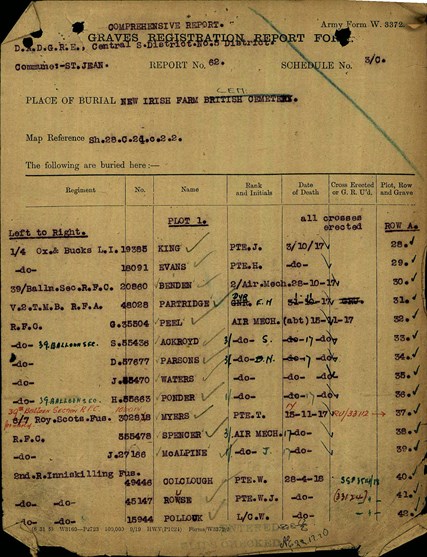 COMPREHENSIVE REPORT.
Army Form W. 3372
GRAVES REGISTRATION REPORT FORM.
D.A.D.G.R.& E., Central S.District.No.5 District.
Commune:-ST.JEAN. REPORT No. 62. SCHEDULE No. 3/C.
CEM.
PLACE OF BURIAL NEW IRISH FARM BRITISH CEMETERY.
Map Reference Sh.28.C.24.c.2.2.
The following are buried here :—
Regiment No. Name Rank and Initials Date of Death Cross Erected or G. R. U'd. Plot, Row and Grave
PLOT 1. all crosses erected
Left to Right. ROW A.
1/4 Ox.& Bucks L.I. 19385 KING PTE.J. 3/10/17 28.
-do- 18091 EVANS PTE.H. -do- 29.
39/Balln.Sec.R.F.C. 20860 BENDEN 2/Air.Mech. 28-10-17 30.
V.2.T.M.B. R.F.A. 48028 PARTRIDGE 31.
R.F.C. G.35504 PEEL AIR MECH. (abt)15-11-17 32.
-do- 39.BALLOON SEC. S.55436 ACKROYD 3/ -do- S. -do- 17 -do- 33.
-do- D.57677 PARSONS 3/ -do- -do- 17 -do- 34.
-do- J.55470 WATERS -do- -do- -do- 35.
-do- 39 BALLOON SEC. H.55663 PONDER 1/ -do- -do- 17 -do- 36.
39th Balloon Section R.F.C.
6/7 Roy.Scots.Fus. 302818 MYERS PTE.T. 15-11-17 37.
R.F.C. 555478 SPENCER 3/ AIR MECH. 17 -do- 38.
-do- J.27166 McALPINE -do- J. 17 -do- 39.
2nd.R.Inniskilling Fus.
49446 COLCLOUGH PTE.W. 28-4-18 40.
-do- -do- 45147 ROWSE PTE.W.J. -do- 41.
-do- -do- 15944 POLLOCK L/C.W. -do- 42.